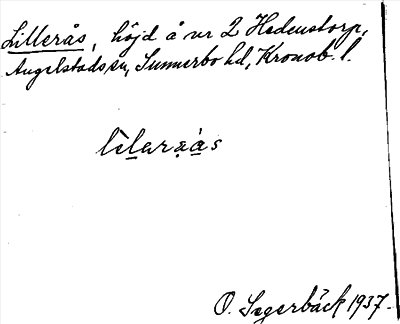 Lillerås, höjd å nr 2 Hedenstorp,
Angelstads sn, Sunnerbo hd, Kronob. l.
O. Segerbäck 1937.